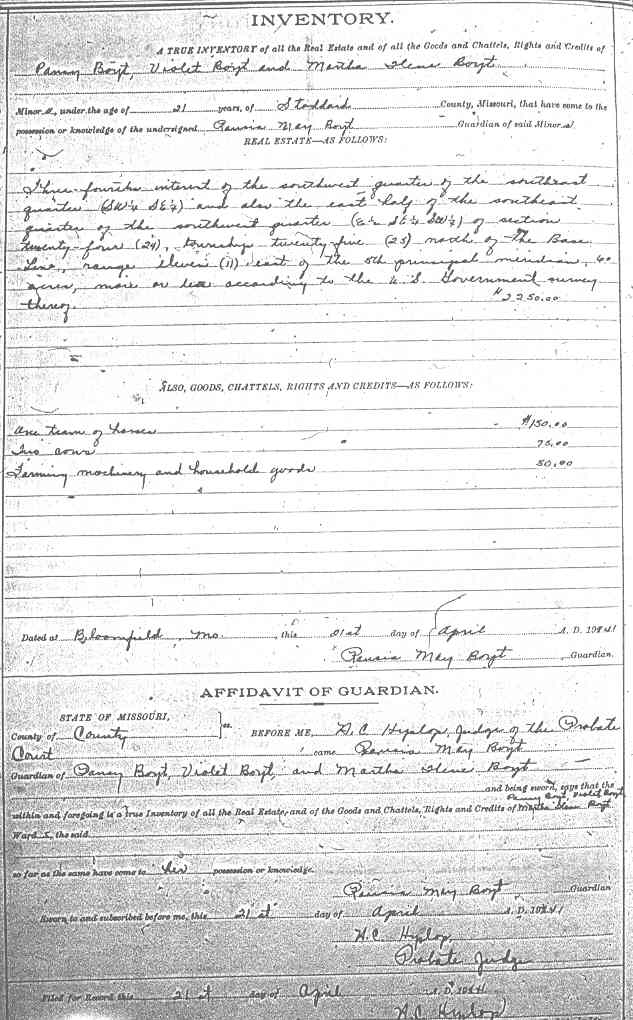 INVENTORY.
A TRUE INVENTORY of all the Real Estate and of all the Goods and Chattels, Rights and Credits of
Pansy Boyt, Violet Boyt and Martha Ilene Boyt
Minor s, under the age of 21 years, of Stoddard County, Missouri, that have come to the
possession or knowledge of the undersigned May Boyt Guardian of said Minor s.
REAL ESTATE—AS FOLLOWS:
Three-fourths interest of the southwest quarter of the southeast
quarter (SW¼ SE¼) and also the east half of the southeast
quarter of the southwest quarter (E½ SE¼ SW¼) of section
twenty-four (24), township twenty-five (25) north of the Base
Line, range eleven (11) east of the 5th principal meridian, 60
acres, more or less according to the U.S. Government survey
thereof. $2250.00
ALSO, GOODS, CHATTELS, RIGHTS AND CREDITS—AS FOLLOWS:
One team of horses $150.00
Two cows 75.00
Farming machinery and household goods 50.00
Dated at Bloomfield, Mo. this 21st day of April A. D. 1941
May Boyt Guardian.
AFFIDAVIT OF GUARDIAN.
STATE OF MISSOURI,
County of County ss. BEFORE ME, Judge of the Probate
Court came May Boyt
Guardian of Pansy Boyt, Violet Boyt, and Martha Ilene Boyt
and being sword, says that the
within and foregoing is a true Inventory of all the Real Estate and of the Goods and Chattels, Rights and Credits of Pansy Boyt, Violet Boyt, Martha Ilene Boyt
Ward s, the said
so far as the same have come to her possession or knowledge.
May Boyt Guardian
Sworn to and subscribed before me, this 21st day of April A. D. 1941
Probate Judge
Filed for Record this 21st day of April A. D. 1941